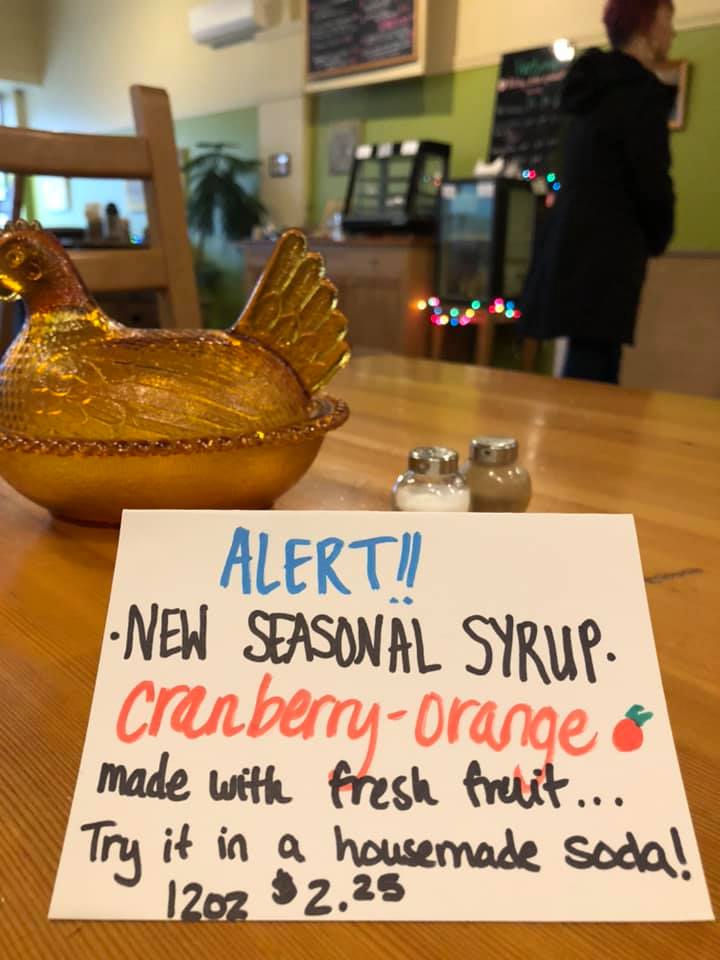 ALERT!!
·NEW SEASONAL SYRUP·
cranberry-orange
made with fresh fruit...
Try it in a housemade soda!
12oz $2.25